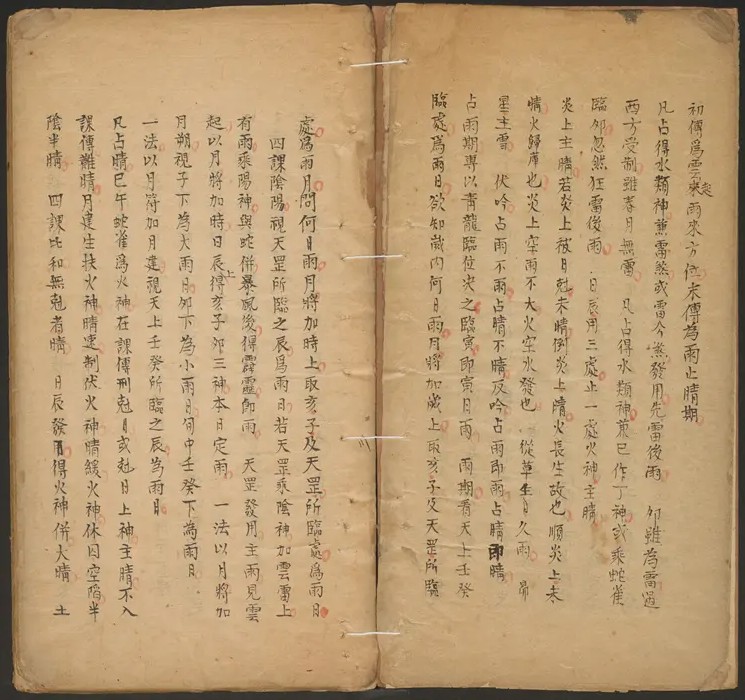 初傳為雲來起雨來方位末傳為雨止晴期
凡占得水類神兼雷煞或雷今煞發用先雷後雨 卯雖為雷過
西方受制雖春月無雷 凡占得水類神兼巳作丁神或乘蛇雀
臨卯忽然狂雷後雨 日辰用三處止一處火神主晴
炎上主晴若炎上被日尅未晴倒炎上晴火長生故也順炎上未
晴火歸庫也炎上空雨不大火空水發也 從革生日久雨 昴
星主雪 伏吟占雨不雨占晴不晴反吟占雨即雨占晴即晴
占雨期專以青龍臨位决之臨寅即寅日雨 雨期看天上壬癸
臨處為雨日欲知歲内何日雨月將加歲上取亥子及天罡所臨
處為雨月問何日雨月將加時上取亥子及天罡所臨處為雨日
四課陰陽視天罡所臨之辰為雨日若天罡乘陰神加雲雷上
有雨乘陽神與蛇併暴風後得霹靂即雨 天罡發用主雨見雲
起以月將加時日辰上得亥子卯三神本日定雨 一法以月將加
月朔視子下為大雨日卯下為小雨日旬中壬癸下為雨日
一法以月將加月建視天上壬癸所臨之辰為雨日
凡占晴巳午蛇雀為火神在課傳刑尅日或尅日上神主晴不入
課傳難晴月建生扶火神晴速制伏火神晴緩火神休囚空陷半
陰半晴 四課比和無尅者晴 日辰發用得火神併大晴 土